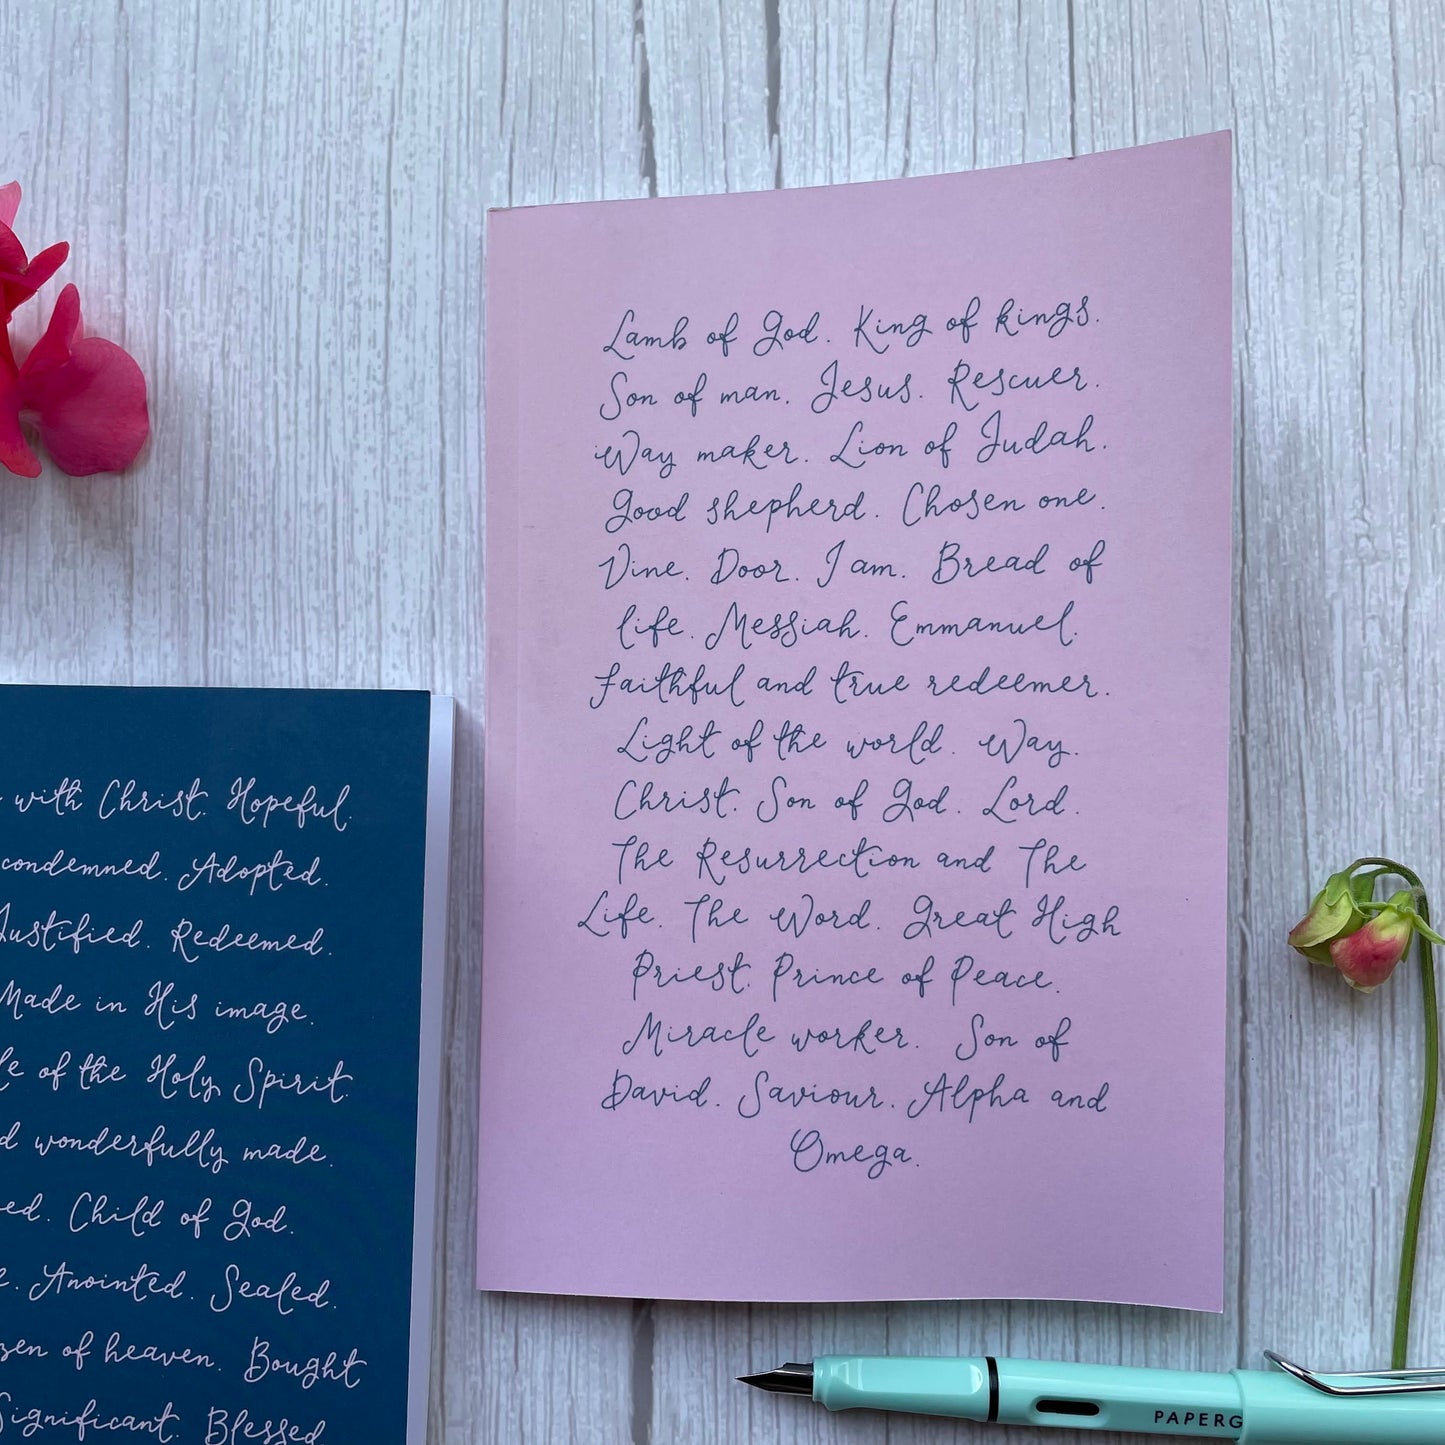 Lamb of God. King of kings.
Son of man. Jesus. Rescuer.
Way maker. Lion of Judah.
Good shepherd. Chosen one.
Vine. Door. I am. Bread of
life. Messiah. Emmanuel.
Faithful and true redeemer.
Light of the world. Way.
Christ. Son of God. Lord.
The Resurrection and The
Life. The Word. Great High
Priest. Prince of Peace.
Miracle worker. Son of
David. Saviour. Alpha and
Omega.
with Christ. Hopeful.
condemned. Adopted.
Justified. Redeemed.
Made in His image.
of the Holy Spirit.
wonderfully made.
Child of God.
Anointed. Sealed.
of heaven. Bought
Significant. Blessed
PAPERG